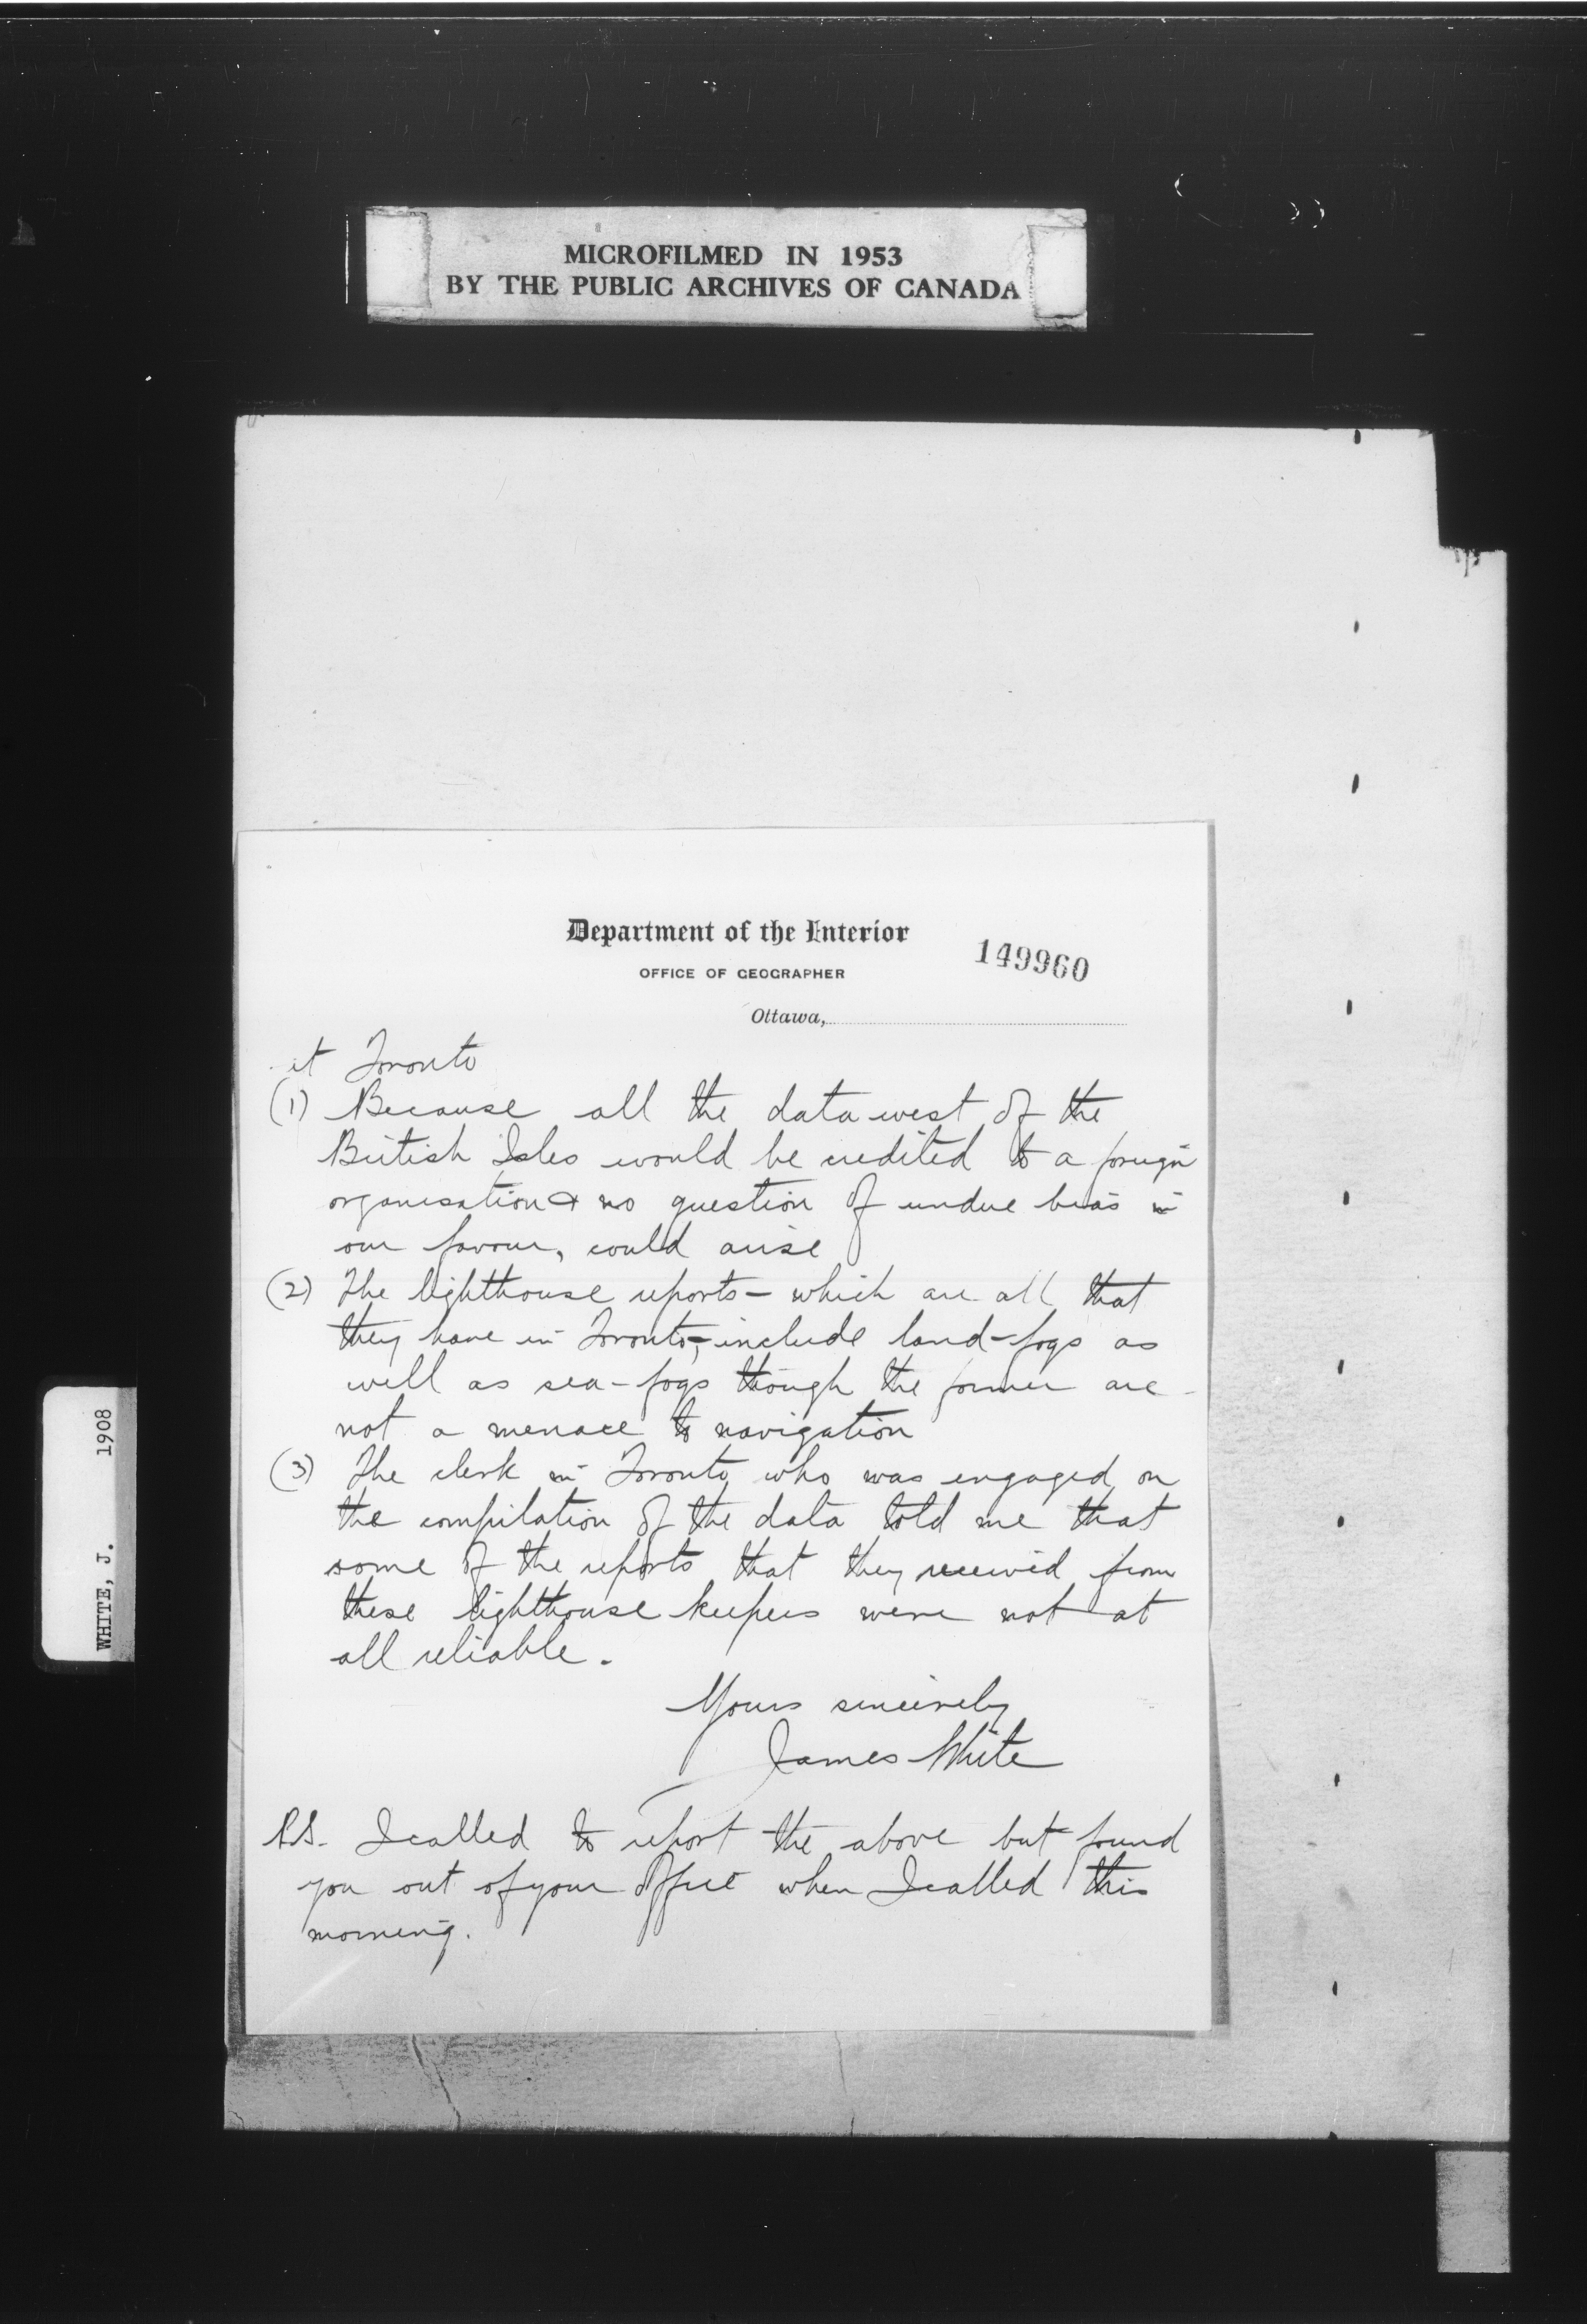 MICROFILMED IN 1953
BY THE PUBLIC ARCHIVES OF CANADA
Department of the Interior
OFFICE OF GEOGRAPHER
149960
Ottawa,
at Toronto
(1) Because all the data west of the
British Isles would be credited to a foreign
organisation & no question of undue bias in
our favour, could arise
(2) The lighthouse reports - which are all that
they have in Toronto, - include land-fogs as
well as sea-fogs though the former are
not a menace to navigation
(3) The clerk in Toronto who was engaged on
the compilation of the data told me that
some of the reports that they received from
these lighthouse keepers were not at
all reliable.
Yours sincerely
James White
P.S. I called to report the above but found
you out of your office when I called this
morning.
WHITE, J. 1908